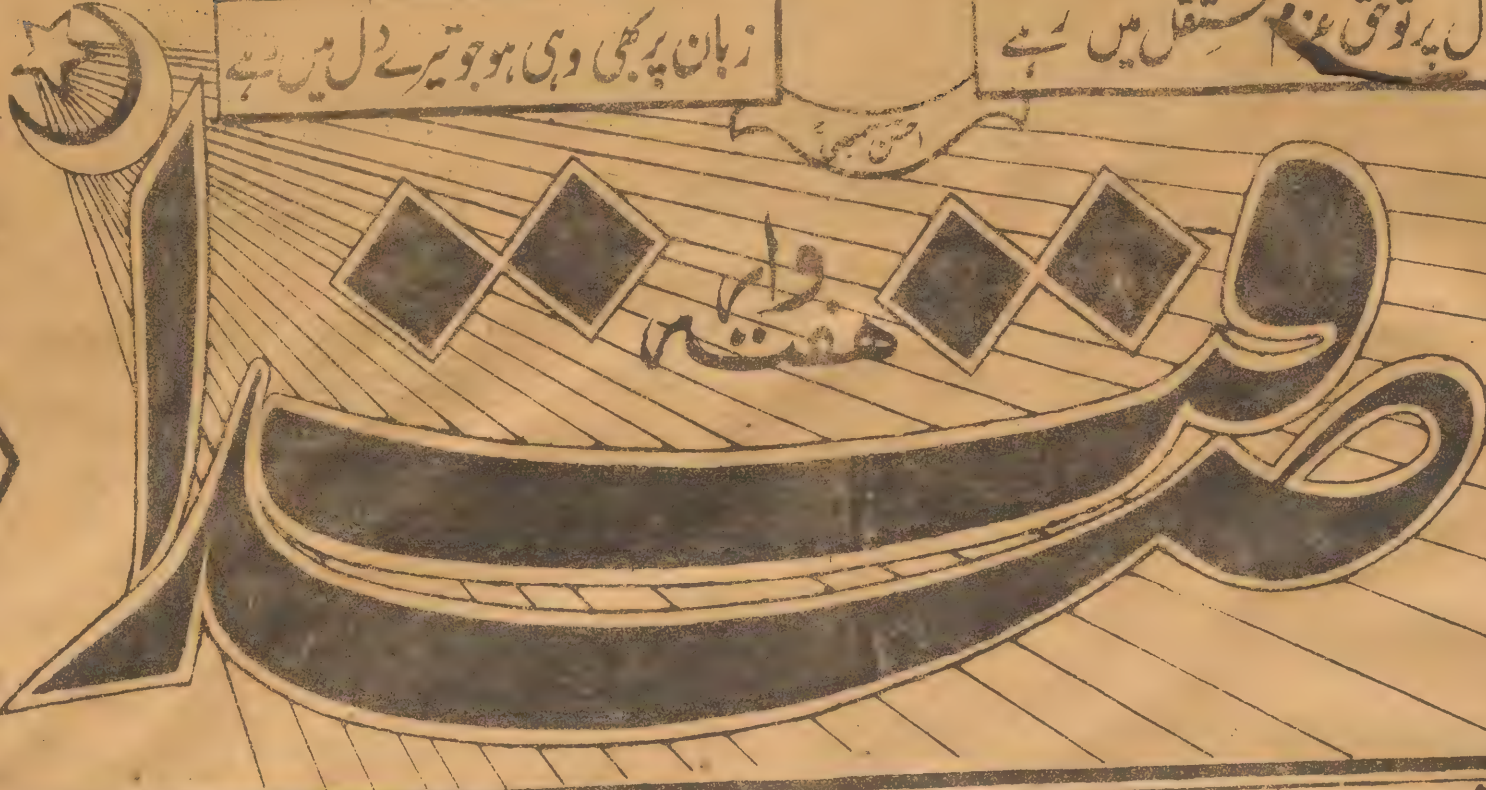 پرتو حق عزم مستقل میں رہے
زبان پر بھی وہی ہو جو تیرے دل میں رہے
احسن
هفته وار
صداقت